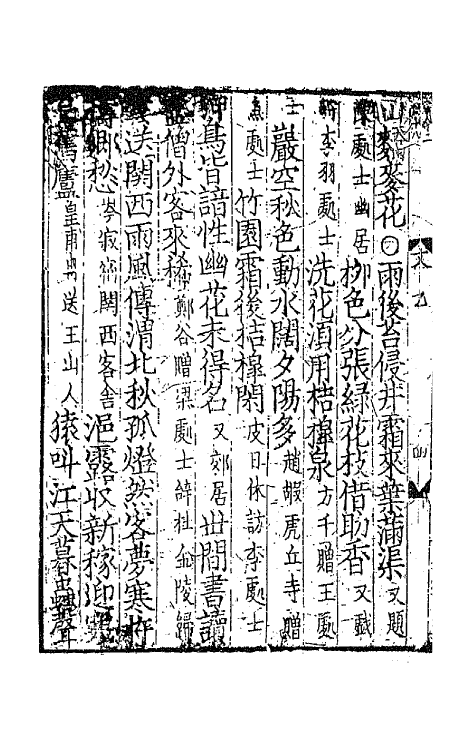 麥花○雨後苔侵井霜來葉滿渠又題
處士幽居柳色分張綠花枝借助香又獻
李羽處士洗花須用桔槔泉方干贈王處
士巖空秋色動水闊夕陽多趙嘏虎丘寺贈
魚處士竹園霜後桔槔閑皮日休訪李處士
鳥皆諳性幽花未得名又郊居世間書讀
僧外客來稀鄭谷贈梁處士辭金陵歸
送關西雨風傳渭北秋孤燈然客夢寒杵
鄉愁岑關西客舍浥露收新稼迎
舊廬皇甫冉送王山人猿叫江天暮蟲聲